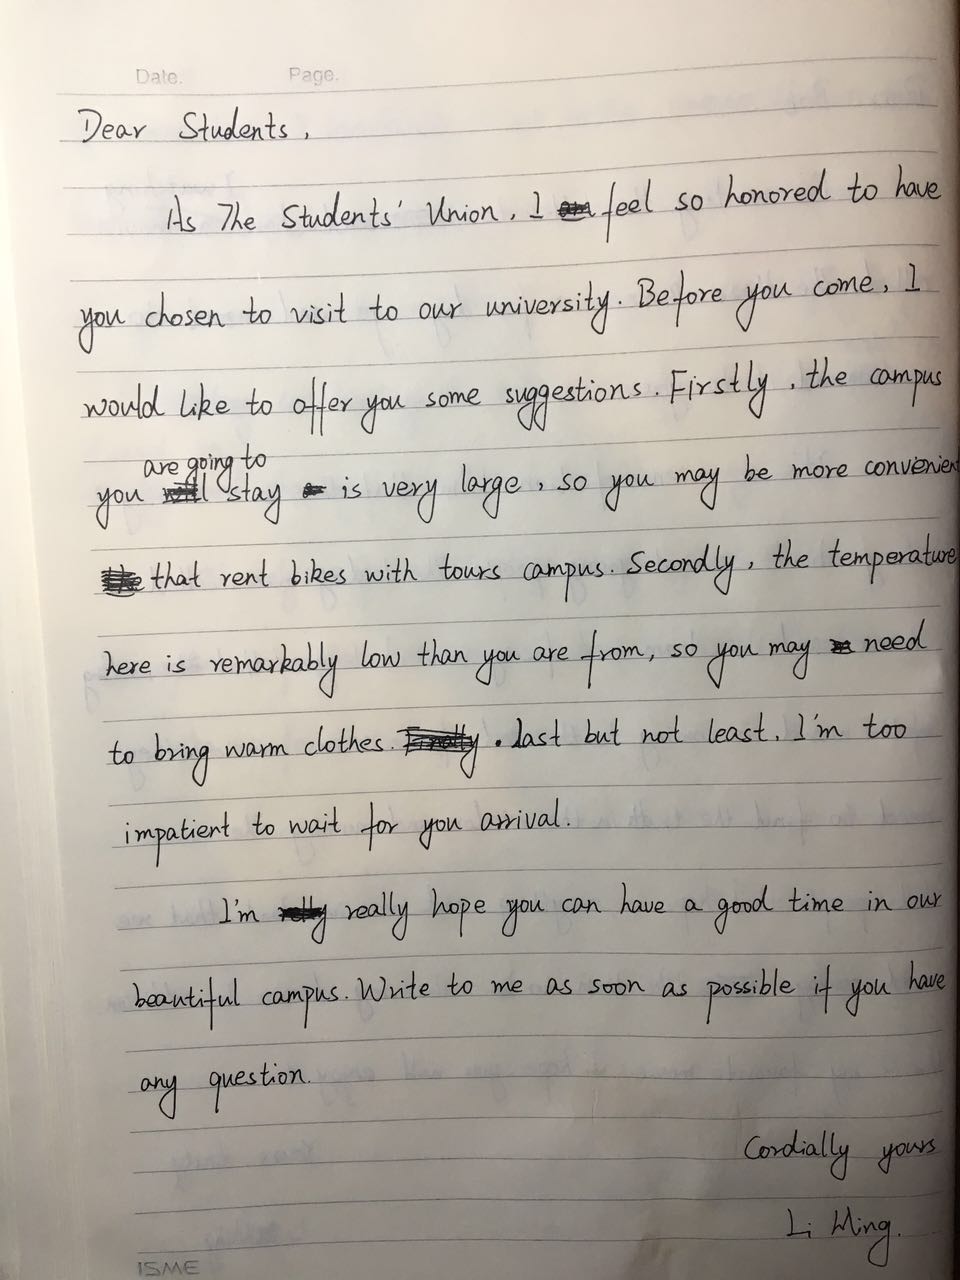 Date. Page.
Dear Students,
As The Students' Union, I feel so honored to have
you chosen to visit to our university. Before you come, I
would like to offer you some suggestions. Firstly, the campus
are going to
you stay is very large, so you may be more convenient
that rent bikes with tours campus. Secondly, the temperature
here is remarkably low than you are from, so you may need
to bring warm clothes. . last but not least, I'm too
impatient to wait for you arrival.
I'm really hope you can have a good time in our
beautiful campus. Write to me as soon as possible if you have
any question.
Cordially yours
Li Ming.
ISME